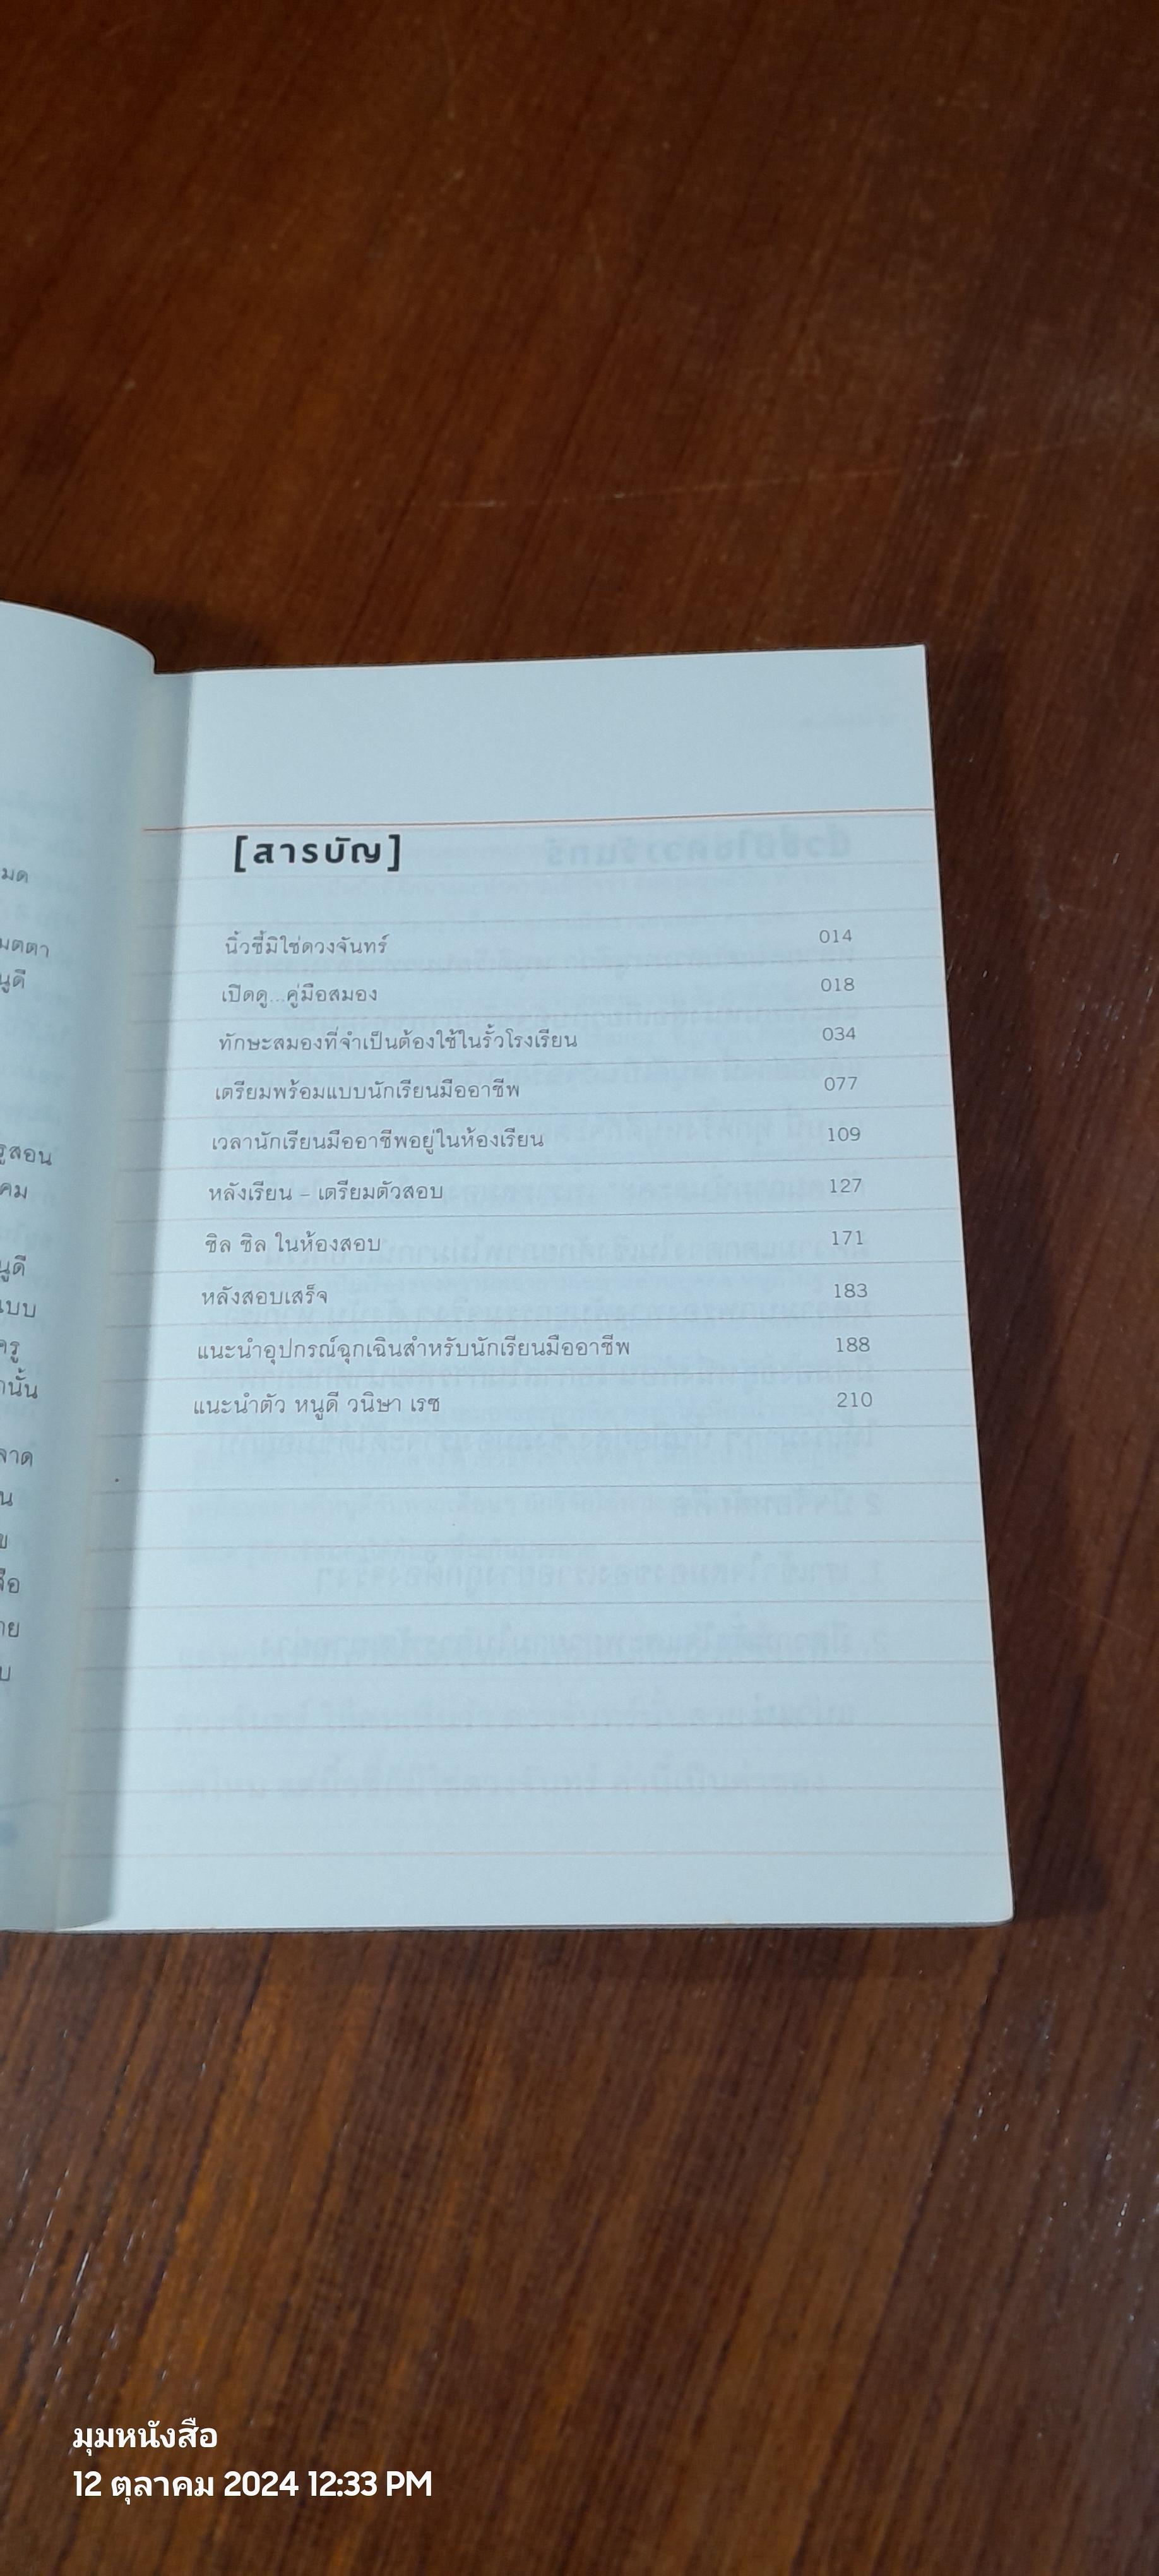 [สารบัญ]
นิ้วชี้มิใช่ดวงจันทร์ 014
เปิดดู...คู่มือสมอง 018
ทักษะสมองที่จำเป็นต้องใช้ในรั้วโรงเรียน 034
เตรียมพร้อมแบบนักเรียนมืออาชีพ 077
เวลานักเรียนมืออาชีพอยู่ในห้องเรียน 109
หลังเรียน – เตรียมตัวสอบ 127
ชิล ชิล ในห้องสอบ 171
หลังสอบเสร็จ 183
แนะนำอุปกรณ์ฉุกเฉินสำหรับนักเรียนมืออาชีพ 188
แนะนำตัว หนูดี วนิษา เรซ 210
มุมหนังสือ
12 ตุลาคม 2024 12:33 PM